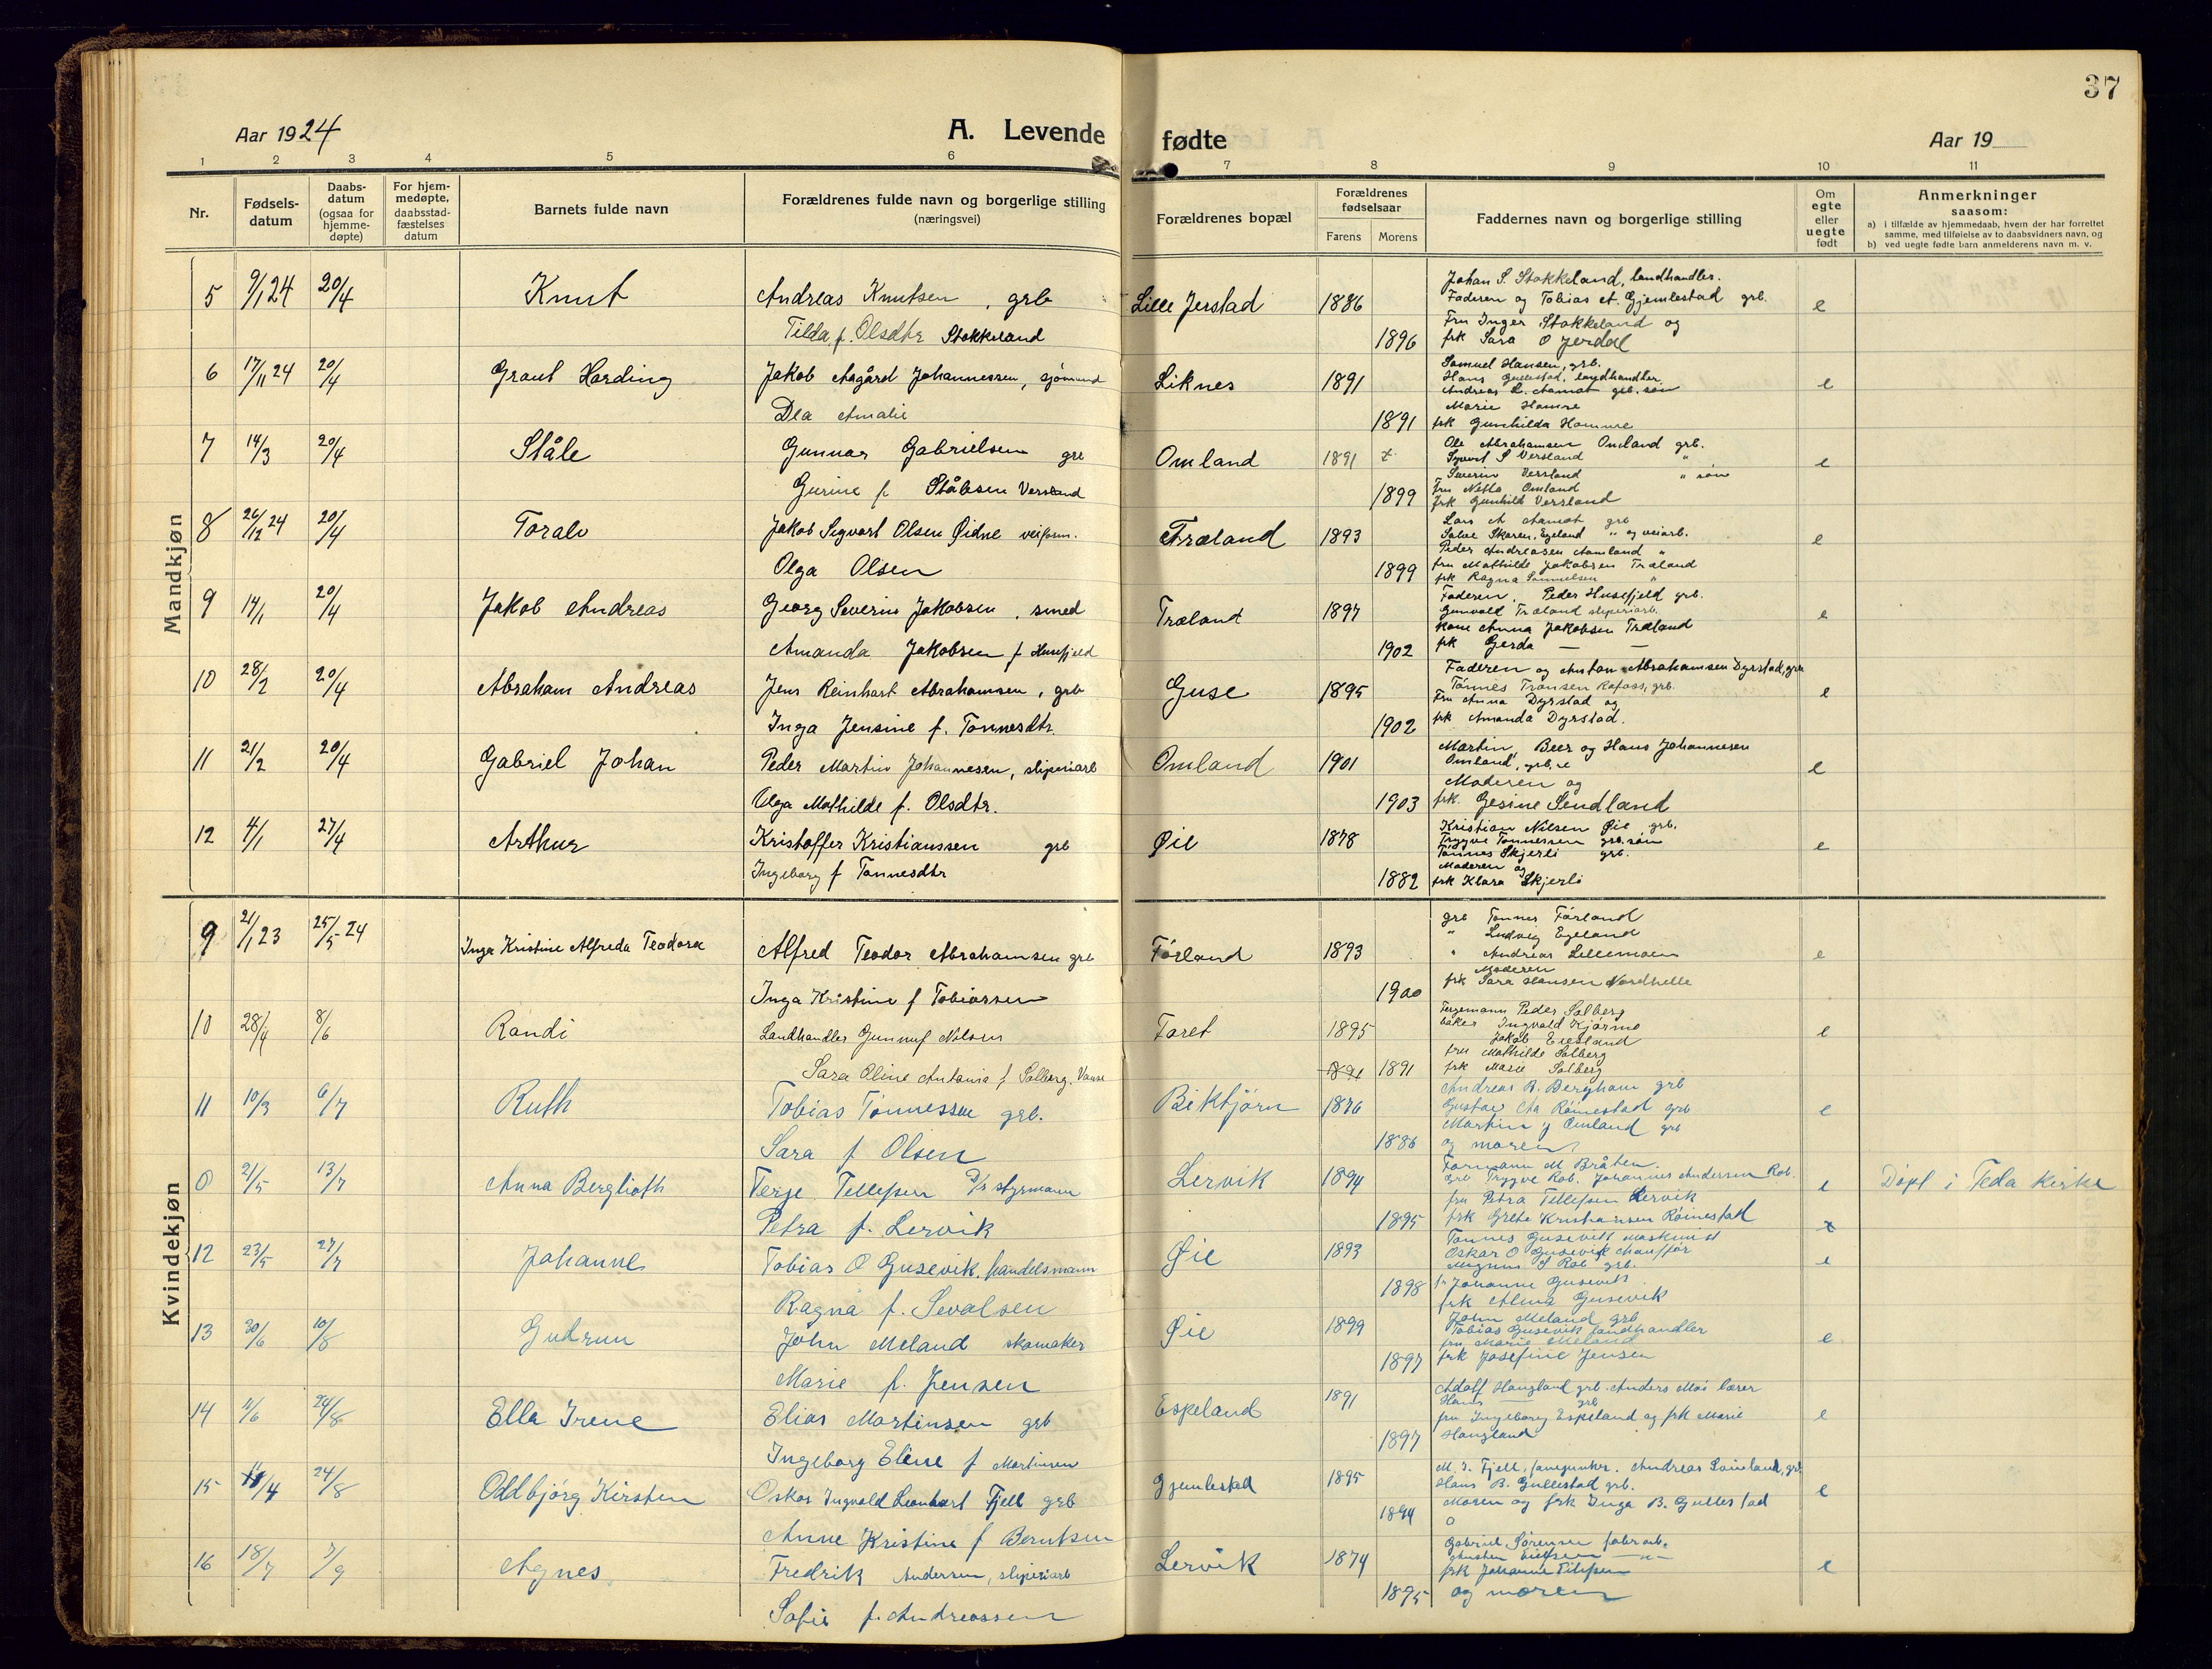 37
Aar 1924
A. Levende fødte
Aar 19
1 2 3 4 5 6 7 8 9 10 11
Nr.
Fødsels-
datum
Daabs-
datum
(ogsaa for
hjemme-
døpte)
For hjem-
medøpte,
daabsstad-
fæstelses
datum
Barnets fulde navn
Forældrenes fulde navn og borgerlige stilling
(næringsvei)
Forældrenes bopæl
Forældrenes
fødselsaar
Farens Morens
Faddernes navn og borgerlige stilling
Om
egte
eller
uegte
født
Anmerkninger
saasom:
a) i tilfælde av hjemmedaab, hvem der har forrettet
samme, med tilføielse av to daabsvidners navn, og
b) ved uegte fødte barn anmelderens navn m. v.
Mandkjøn
5 9/1 24 20/4 Knut Andreas Knutsen, grb Lille Jerstad 1886 e
Tilda f. Olsdtr Stokkeland 1896
Johan S. Stokkeland, landhandler.
Faderen og Tobias et. Gjemlestad grb.
Fru Inger Stokkeland og
frk Sara O Jerdal
6 17/11 24 20/4 Graut Harding Jakob Aagård Johannessen, sjømand Liknes 1891 e
Dea Amalie 1891
Samuel Hansen, grb.
Hans Gullestad, landhandler
Andreas L. Aamot grb. søn
Marie Hamre
frk Gunhilda Hamre
7 14/3 20/4 Ståle Gunnar Gabrielsen grb Omland 1891 e
Gurine f Stålesen Versland 1899
Ole Abrahamsen Omland grb.
Sigvart S Versland "
Severin Versland " søn
Fru Netta Omland
frk Gunhild Versland
8 26/12 24 20/4 Toralv Jakob Sigvart Olsen Øidne veiform. Træland 1893 e
Olga Olsen 1899
Lars A Aamot grb
Salve Skaren, Egeland " og veiarb.
Peder Andreasen Aamland "
fru Mathilde Jakobsen Træland
frk Ragna Samuelsen "
9 14/1 20/4 Jakob Andreas Georg Severin Jakobsen, smed Træland 1897 e
Amanda Jakobsen f Husefjeld 1902
Faderen, Peder Husefjeld grb.
Gunvald Træland sliperiarb.
kone Anna Jakobsen Træland
frk Gerda — —
10 28/2 20/4 Abraham Andreas Jens Reinhart Abrahamsen, grb Guse 1895 e
Inga Jensine f. Tønnesdtr 1902
Faderen og Anton Abrahamsen Dyrstad, grb
Tønnes Tronsen Rafoss, grb.
Fru Anna Dyrstad og
frk Amanda Dyrstad.
11 21/2 20/4 Gabriel Johan Peder Martin Johannesen, sliperiarb Omland 1901 e
Olga Mathilde f. Olsdtr. 1903
Martin, Beer og Hans Johannesen
Omland, grb.e
Moderen og
frk. Gesine Sendland
12 4/1 27/4 Arthur Kristoffer Kristianssen grb Øie 1878 e
Ingeborg f Tønnesdtr 1882
Kristian Nilsen Øie grb.
Trygve Tønnessen grb. søn
Tønnes Skjerli grb.
Moderen og
frk Klara Skjerli
Kvindekjøn
9 21/1 23 25/5 24 Inga Kristine Alfreda Teodora Alfred Teodor Abrahamsen grb Førland 1893 e
Inga Kristine f Tobiassen 1900
grb Tønnes Førland
" Ludvig Egeland
" Andreas Lillemoen
Moderen
frk Sara Hansen Nordhelle
10 28/4 8/6 Randi Landhandler Gunnuf Nilsen Faret 1895 e
Sara Oline Antonia f Salberg, Vanse 1891
Peder Salberg
baker Ingvald Kjørmo
Jakob Eiesland
fru Mathilde Salberg
frk Marie Salberg
11 10/3 6/7 Ruth Tobias Tønnessen grb. Birktjørn 1876 e
Sara f Olsen 1886
Andreas B. Bergham grb
Gustav Aa Røinestad grb
Martin J Omland grb
og moren
0 21/5 13/7 Anna Berglioth Terje Tellefsen D/s styrmann Lervik 1894 e Døpt i Feda kirke
Petra f. Lervik 1895
Formann M Bråten.
grb Trygve Rob. Johannes Andersen Rob.
fru Petra Tellefsen Lervik
frk Grete Kristiansen Røinestad
12 23/5 27/7 Johanne Tobias O Gusevik, handelsmann Øie 1893 e
Ragna f. Sevalsen 1898
Tønnes Gusevik maskinist
Oskar O Gusevik chauffør
Magnus S Rob grb.
fr Johanne Gusevik
frk Alma Gusevik
13 30/6 10/8 Gudrun John Meland skomaker Øie 1899 e
Marie f. Jensen 1897
John Meland grb
Tobias Gusevik landhandler
fru Marie Meland
frk Josefine Jensen
14 11/6 24/8 Ella Irene Elias Martinsen grb Espeland 1891 e
Ingeborg Eline f Martinsen 1897
Adolf Haugland grb. Anders Moi lærer
Hans — grb
fru Ingeborg Espeland og frk Marie
Haugland
15 24/8 Oddbjørg Kirsten Oskar Ingvald Leonhart Fjell grb Gjemlestad 1895 e
Anne Kristine f Berntsen 1894
M. I. Fjell, fanejunker. Andreas Løiland, grb
Hans B. Gullestad grb.
Moren og frk Inga B. Gullestad
16 18/7 7/9 Agnes Fredrik Andersen, sliperiarb Lervik 1874 e
Sofie f. Andreassen 1895
Gabriel Sørensen fabrarb.
frk Johanne Tillefsen
og moren